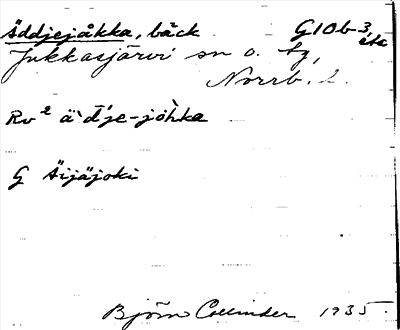 Äddjejåkka, bäck G10b-3, etc
Jukkasjärvi sn o. tg,
Norrb. l.
Rv² ä`d̄'je-jòh̀ka
G äijäjoki
Björn Collinder 1935